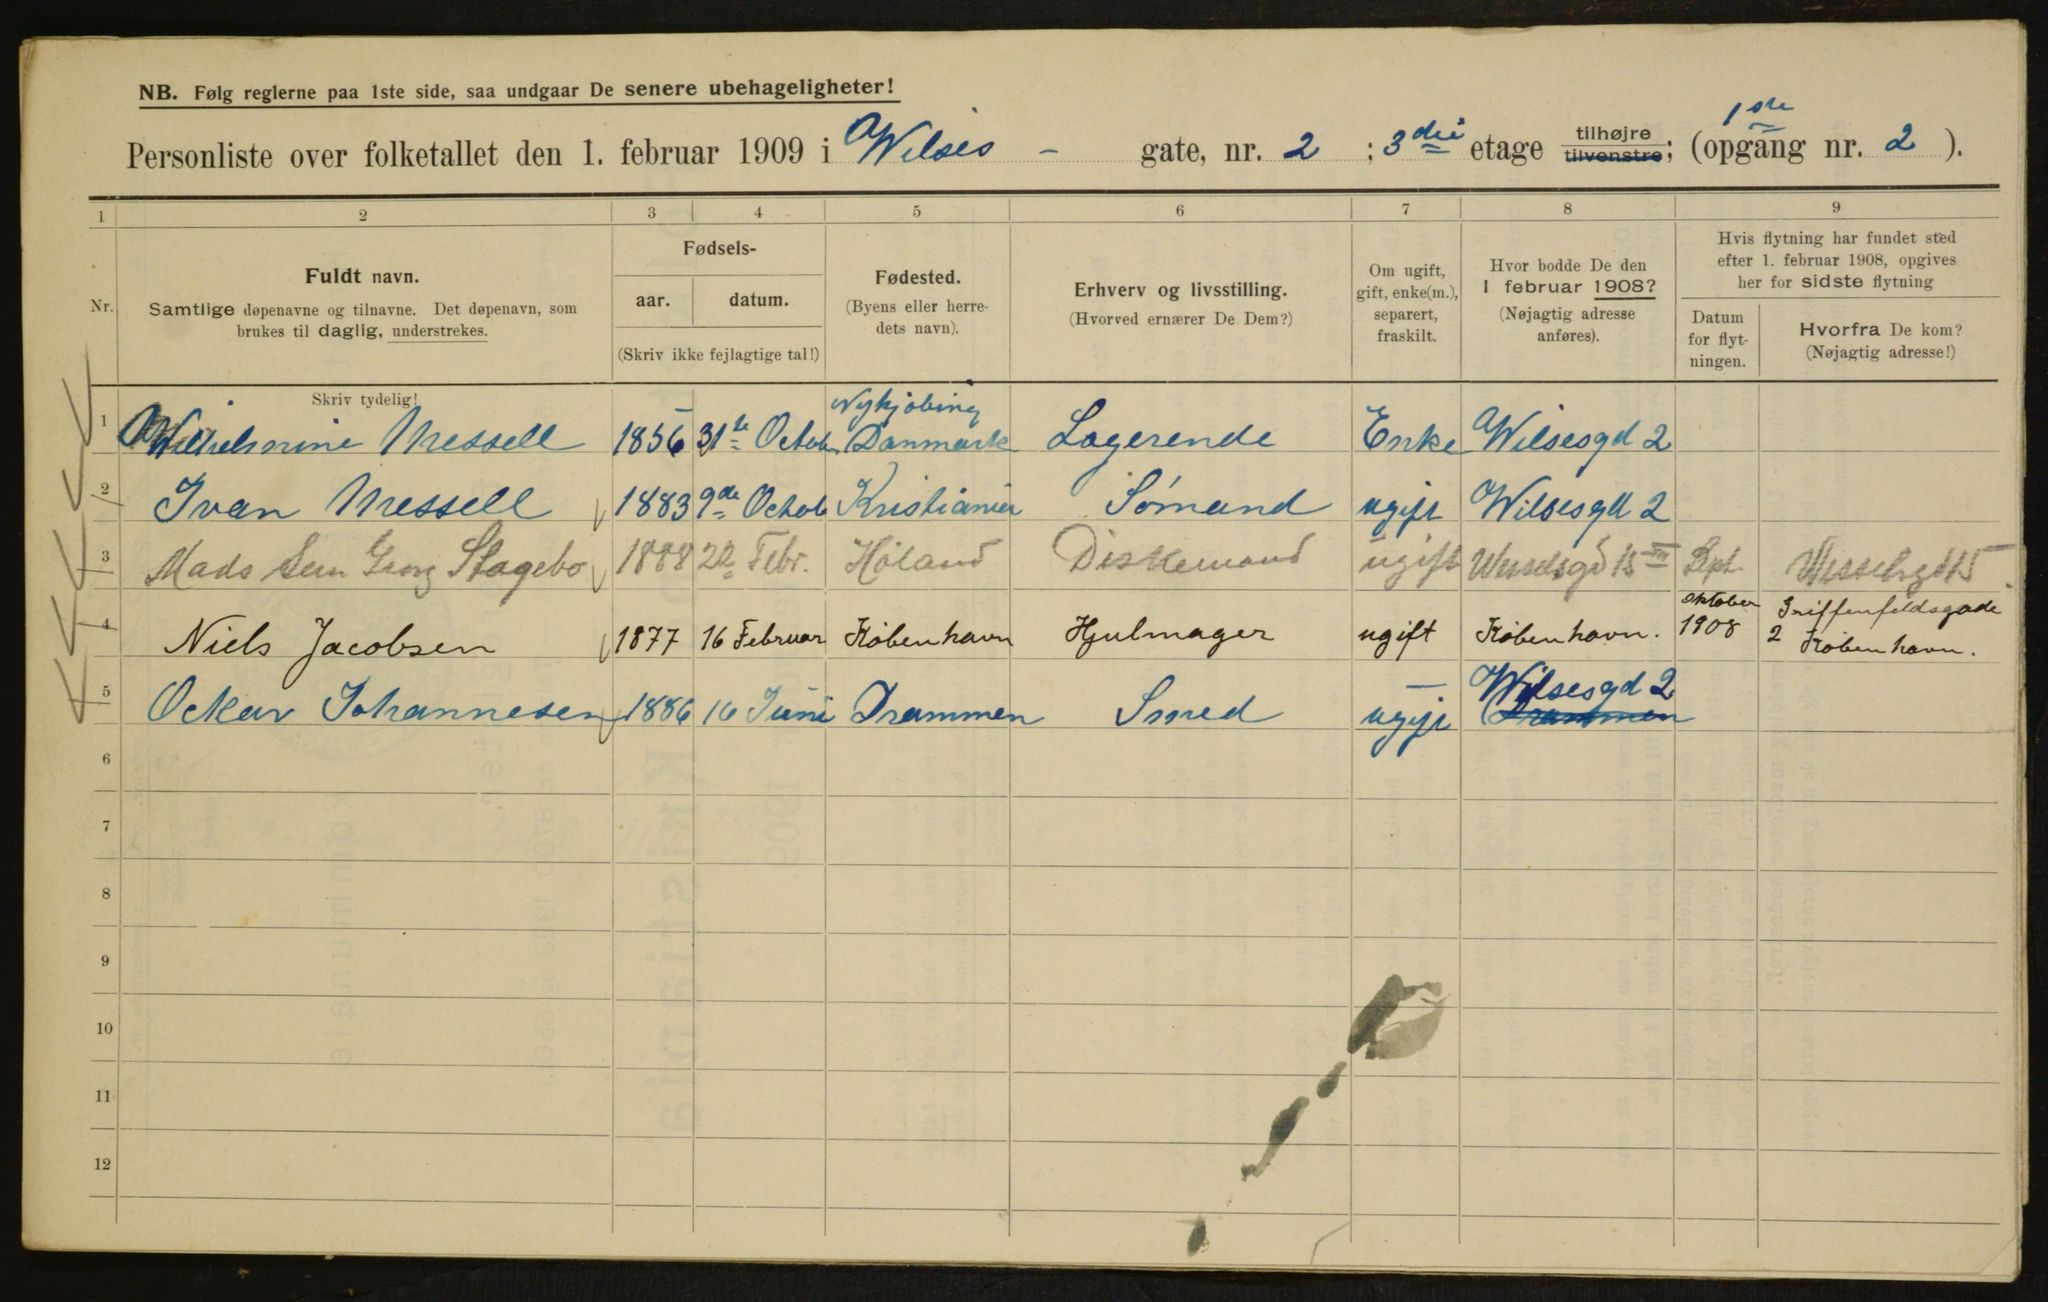 NB. Følg reglerne paa 1ste side, saa undgaar De senere ubehageligheter!
Personliste over folketallet den 1. februar 1909 i Wilses - gate, nr. 2 ; 3die etage tilhøjre tilvenstre; (1ste opgang nr. 2 ).
1 2 3 4 5 6 7 8 9
Nr.
Fuldt navn.
Samtlige døpenavne og tilnavne. Det døpenavn, som
brukes til daglig, understrekes.
Fødsels-
aar. datum.
(Skriv ikke fejlagtige tal!)
Fødested.
(Byens eller herre-
dets navn).
Erhverv og livsstilling.
(Hvorved ernærer De Dem?)
Om ugift,
gift, enke(m.),
separert,
fraskilt.
Hvor bodde De den
1 februar 1908?
(Nøjagtig adresse
anføres).
Hvis flytning har fundet sted
efter 1. februar 1908, opgives
her for sidste flytning
Datum
for flyt-
ningen.
Hvorfra De kom?
(Nøjagtig adresse!)
Skriv tydelig!
1 Wilhelmine Messell 1856 31te Octob Nykjøbing Danmark Logerende Enke Wilsesgd 2
2 Ivan Messell 1883 9de Octob Kristiania Sømand ugift Wilsesgd 2
3 Mads Georg Stagebo 1888 22 Febr. Høland Diskemand ugift Wesselsgd 15 III Sept. Wesselsgd 15
4 Niels Jacobsen 1877 16 Februar København Hjulmager ugift København. oktober 1908 Griffenfeldsgade 2 København.
5 Ockar Johannesen 1886 16 Juni Drammen Smed ugift Wilsesgd 2 Drammen
6
7
8
9
10
11
12